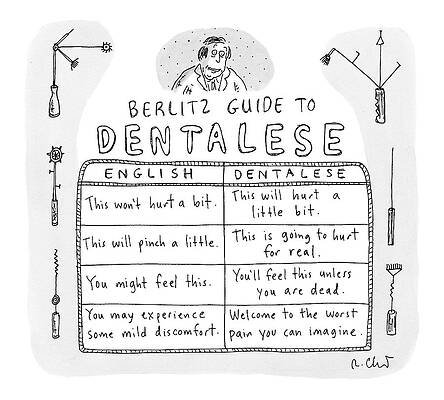 BERLITZ GUIDE TO
DENTALESE
ENGLISH DENTALESE
This won't hurt a bit. This will hurt a
little bit.
This will pinch a little. This is going to hurt
for real.
You might feel this. You'll feel this unless
you are dead.
You may experience Welcome to the worst
some mild discomfort. pain you can imagine.